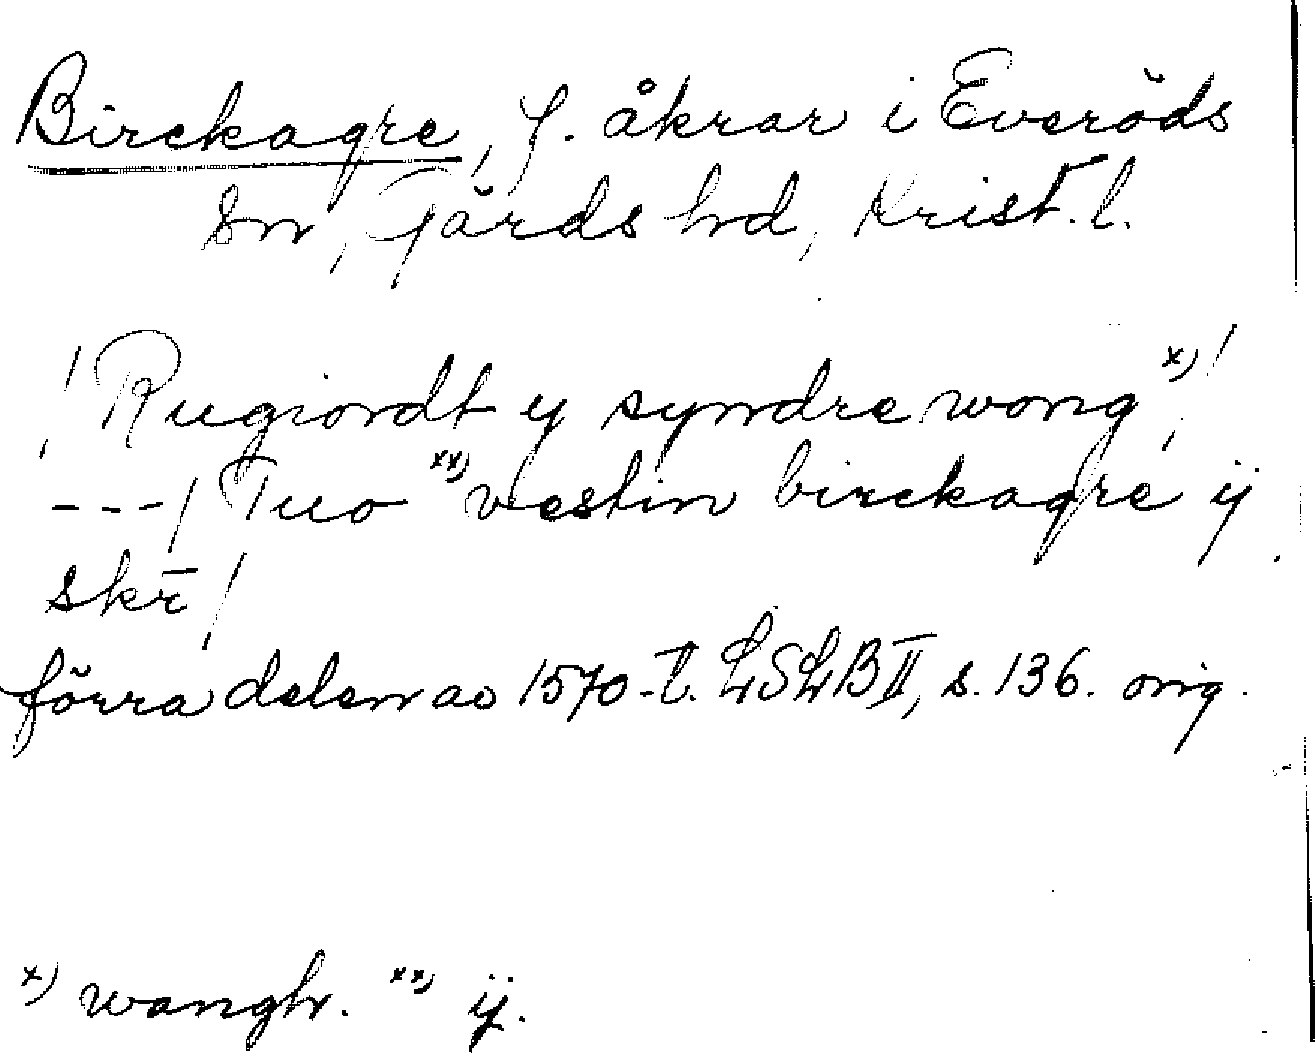 Birckagre, f. åkrar i Everöds
sn, Gärds hd, Krist. l.
/Rugiordt y syndre wong x)/
---/ Tuo xx) vestin birckagre ij
skr̄/
förra delen av 1570-t. LSLB II, s. 136. orig.
x) wangh. xx) ij.